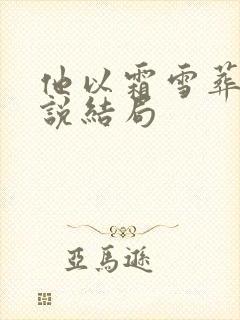 他以霜雪葬
說結局
亞馬遜